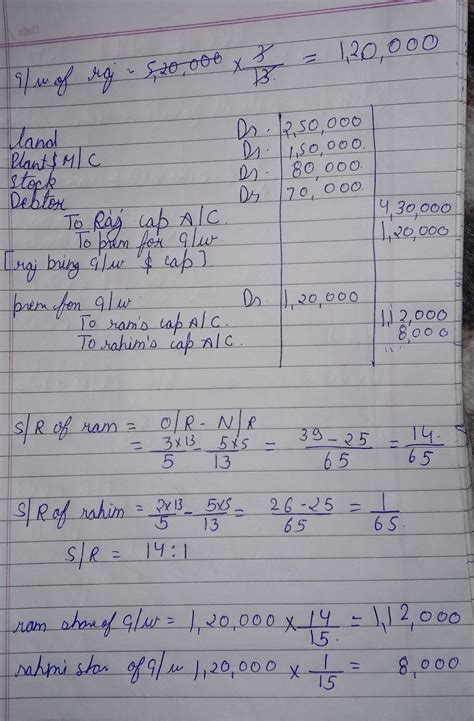 G/w of raj = 5,20,000 × 3/13 = 1,20,000
land Dr. 2,50,000
Plant & M/C Dr. 1,50,000
Stock Dr. 80,000
Debtor Dr 70,000
To Raj cap A/C. 4,30,000
To prem for g/w 1,20,000
[raj bring G/w & cap]
prem for g/w Dr. 1,20,000
To ram's cap A/C. 1,12,000
To rahim's cap A/C. 8,000
S/R of ram = O/R - N/R
= 3×13/5 - 5×5/13 = 39-25/65 = 14/65
S/R of rahim = 2×13/5 - 5×5/13 = 26-25/65 = 1/65
S/R = 14:1
ram share of G/w = 1,20,000 × 14/15 = 1,12,000
rahmi shar of G/w 1,20,000 × 1/15 = 8,000